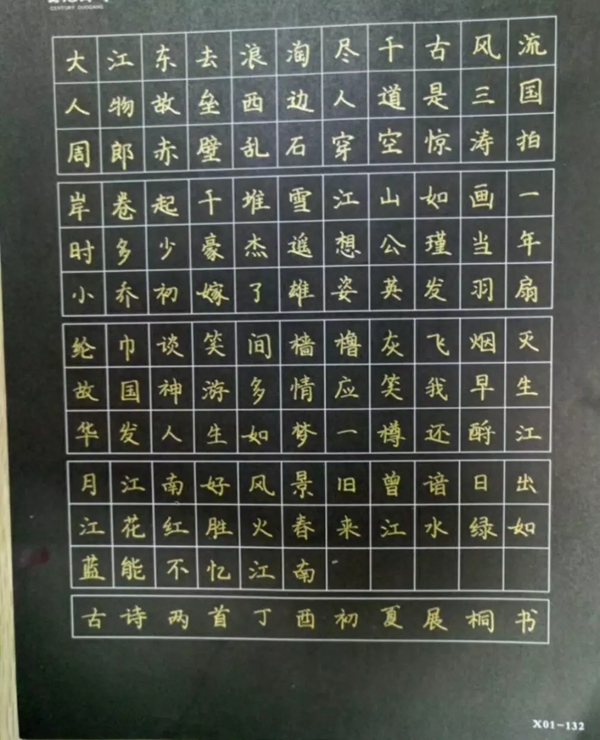 CENTURY GUOGANG
大江东去浪淘尽千古风流
人物故垒西边人道是三国
周郎赤壁乱石穿空惊涛拍
岸卷起千堆雪江山如画一
时多少豪杰遥想公瑾当年
小乔初嫁了雄姿英发羽扇
纶巾谈笑间樯橹灰飞烟灭
故国神游多情应笑我早生
华发人生如梦一樽还酹江
月江南好风景旧曾谙日出
江花红胜火春来江水绿如
蓝能不忆江南
古诗两首丁酉初夏展桐书
X01-132